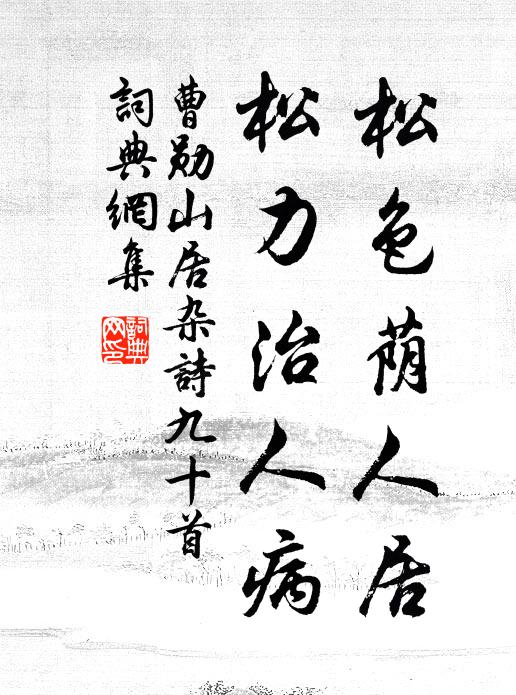 松色荫人居
松力治人病
曹勋山居杂詩九十首
詞典網集
詞典网印